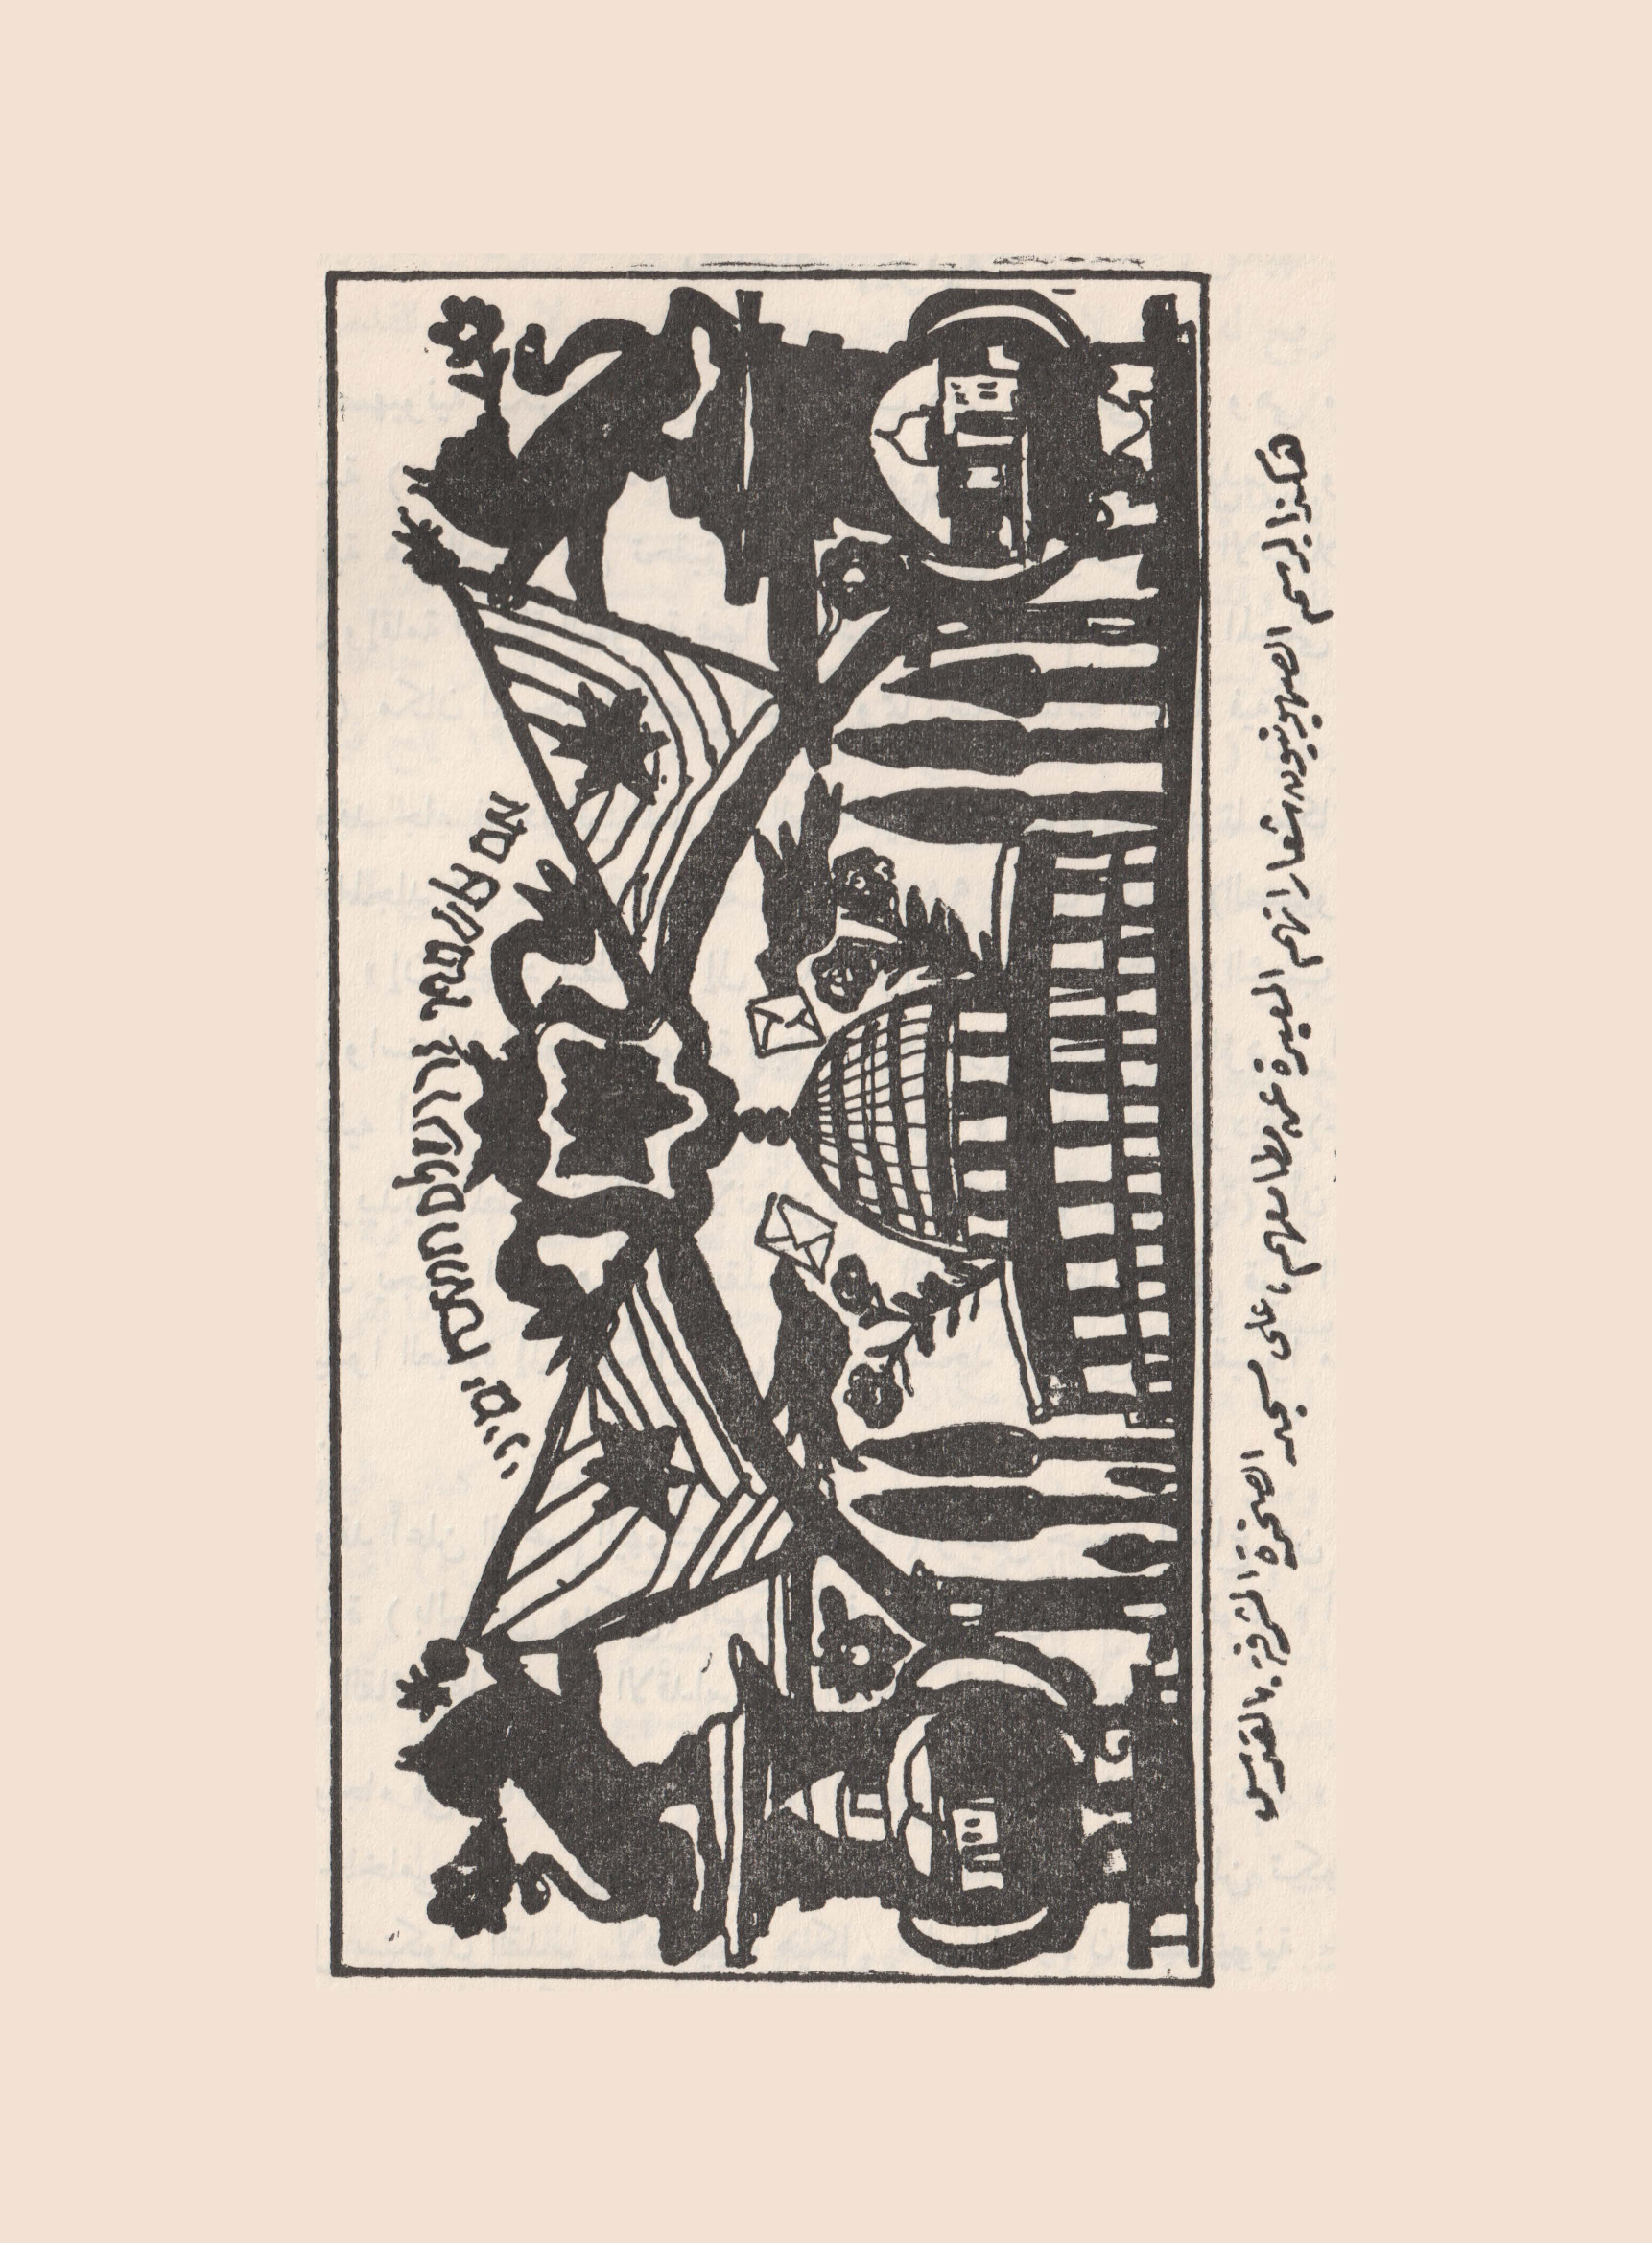 אם אשכחך ירושלם תשכח ימיני
هكذا يرسم الصهيونيون شعاراتهم المعبرة عن مطامعهم ، على مسجد الصخرة المشرفة بالقدس